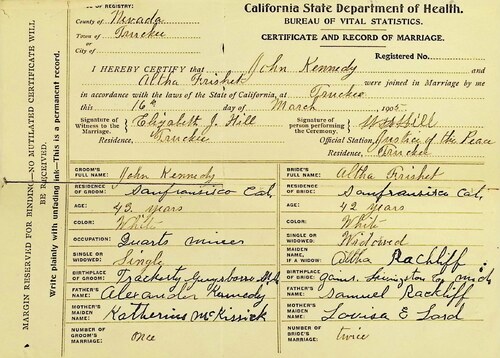 OF REGISTRY:
County of Nevada
Town of Truckee
or
City of
California State Department of Health.
BUREAU OF VITAL STATISTICS.
CERTIFICATE AND RECORD OF MARRIAGE.
Registered No.
I HEREBY CERTIFY that John Kennedy and
Altha Frishet were joined in Marriage by me
in accordance with the laws of the State of California, at Truckee
this 16th day of March, 1905
Signature of Witness to the Marriage. Elizabeth J. Hill
Residence, Truckee
Signature of person performing the Ceremony. Hill
Official Station, Justice of the Peace
Residence, Truckee
MARGIN RESERVED FOR BINDING—NO MUTILATED CERTIFICATE WILL
BE RECEIVED.
Write plainly with unfading ink—This is a permanent record.
GROOM'S FULL NAME: John Kennedy
RESIDENCE OF GROOM: Sanfransisco Cal,
AGE: 43 years
COLOR: White
OCCUPATION: Quarts miner
SINGLE OR WIDOWED: Single
BIRTHPLACE OF GROOM:
FATHER'S NAME: Alexander Kennedy
MOTHER'S MAIDEN NAME: Katherine McKissick
NUMBER OF GROOM'S MARRIAGE: once
BRIDE'S FULL NAME: Altha Frishet
RESIDENCE OF BRIDE: Sanfransisco Cal,
AGE: 42 years
COLOR: White
SINGLE OR WIDOWED: Widowed
MAIDEN NAME, IF A WIDOW: Altha Rachliff
BIRTHPLACE OF BRIDE: Livingston Co
FATHER'S NAME: Samuel Rackliff
MOTHER'S MAIDEN NAME: Lovisa E Lord
NUMBER OF BRIDE'S MARRIAGE: twice